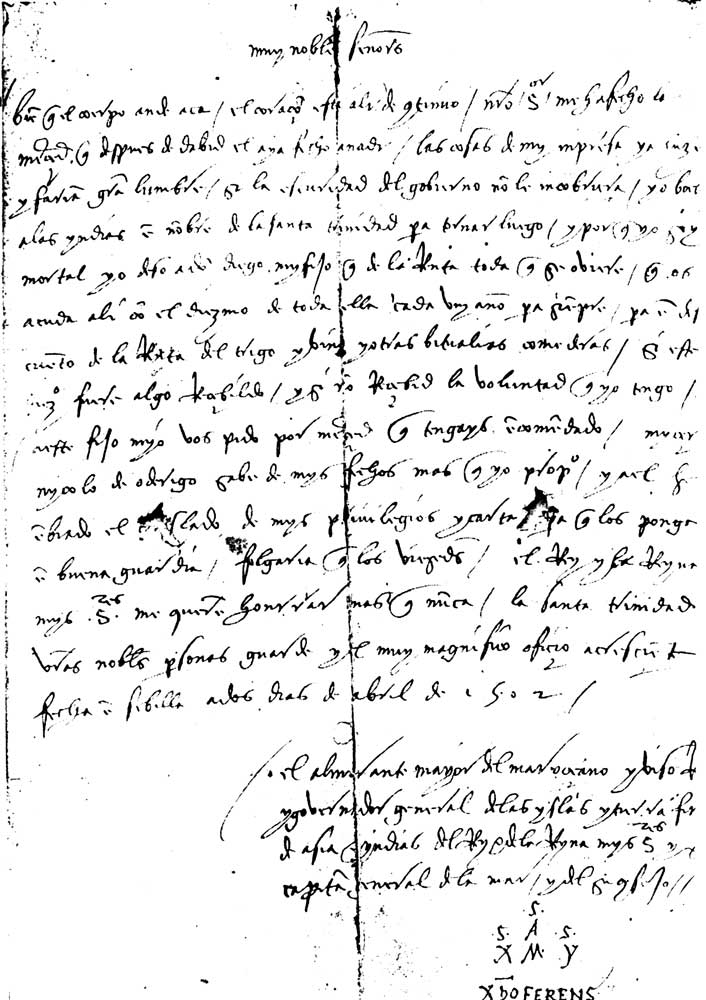 muy nobles señors
bie q el cuerpo ande aca / el coraço esta ali de qtinuo / nro Sor me ha fecho la
merced q despues de dabid el aya fecho a nadie / las cosas de my impresa ya luze
y faria gra lumbre / si la escuridad del gobierno no le incobriera / yo buel
a las yndias e nobre de la santa trinidad pa tornar luego / y por q yo soy
mortal yo deso a do diego my fijo q de la Rnta toda q se oviere / q os
acuda ali co el diezmo de toda ella cada un año pa siepre / pa e des
cueto de la Rnta del trigo y vino y otras bitualias comederas / si este
dezo fuere algo Recibildo / y si no Recibid la voluntad q yo tengo /
a este fijo myo vos pido por merced q tengays ecomedado / micer
nycolo de oderigo sabe de mys fechos mas q yo propo / y a el he
ebiado el traslado de mys privilegios y cartas pa q los ponga
e buena guardia / folgaria q los vieseds / el Rey y la Reyna
mys Sres me quere honrrar mas q nuca / la santa trinidad
vras nobles psonas guarde y el muy magnifico oficio acresciet
fecha e sibilla a dos dias de abril de 1502 /
el almirante mayor del mar oceano y viso R
y governador general de las yslas y tierra fir
de asia e yndias del Ry e de la Ryna mys Sres y
capita general de la mar / y del su qsejo //
.S.
.S. A .S.
X M Y
Xpo FERENS